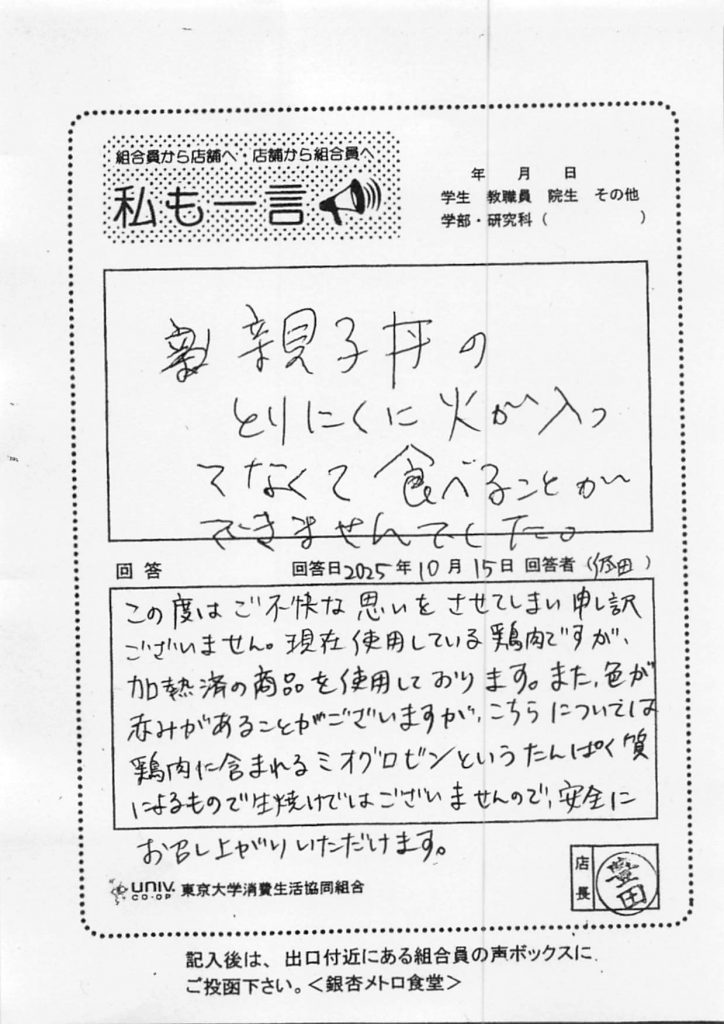 組合員から店舗へ・店舗から組合員へ
私も一言
年 月 日
学生 教職員 院生 その他
学部・研究科（ ）
親子丼の
とりにくに火が入っ
てなくて食べることが
できませんでした。
回答 回答日2025年10月15日 回答者（ 田）
この度はご不快な思いをさせてしまい申し訳
ございません。現在使用している鶏肉ですが、
加熱済の商品を使用しております。また、色が
赤みがあることがございますが、こちらについては
鶏肉に含まれるミオグロビンというたんぱく質
によるもので生焼けではございませんので、安全に
お召し上がりいただけます。
店長 豊田
UNIV. CO-OP 東京大学消費生活協同組合
記入後は、出口付近にある組合員の声ボックスに
ご投函下さい。＜銀杏メトロ食堂＞